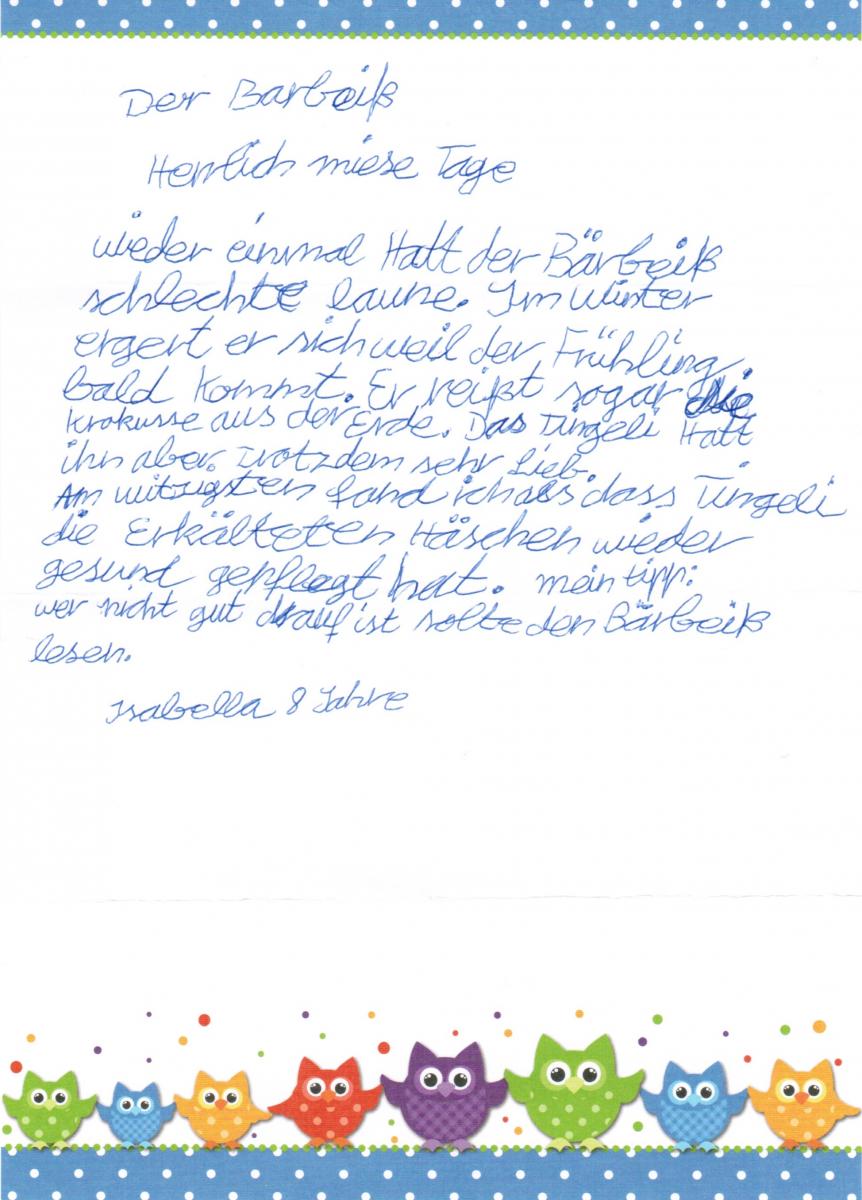 Der Barbeiß
Herrlich miese Tage
wieder einmal Hatt der Bärbeiß
schlechte laune. Im winter
ergert er sich weil der Frühling
bald kommt. Er reißt sogar die
Krokusse aus der Erde. Das Tingeli Hatt
ihn aber. trotzdem sehr Lieb.
Am witzigsten fand ich als dass Tingeli
die Erkälteten Häschen wieder
gesund gepflegt hat. mein tipp:
wer nicht gut drauf ist solte den Bärbeiß
lesen.
Isabella 8 Jahre